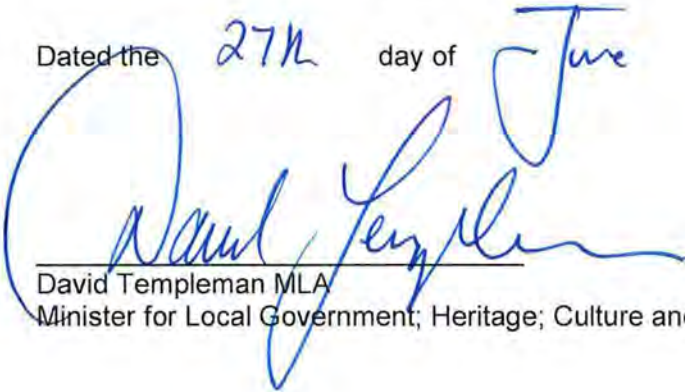 Dated the 27th day of June
David Templeman
David Templeman MLA
Minister for Local Government; Heritage; Culture and